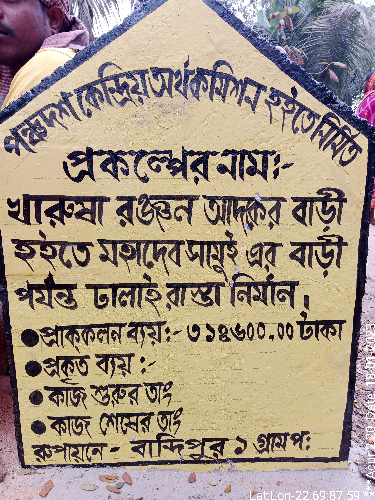 পঞ্চদশ কেন্দ্রিয় অর্থ কমিশন হইতে নির্মিত
প্রকল্পের নাম:-
খারুষা রঞ্জন আদকর বাড়ী
হইতে মহাদেব সামুই এর বাড়ী
পর্যন্ত ঢালাই রাস্তা নির্মান।
প্রাককলন ব্যয়:- ৩১৪৬০০.০০ টাকা
প্রকৃত ব্যয়:-
কাজ শুরুর তাং
কাজ শেষের তাং
রুপায়নে - বান্দিপুর ১ গ্রাম প:
Lat Lon - 22.69 87.59